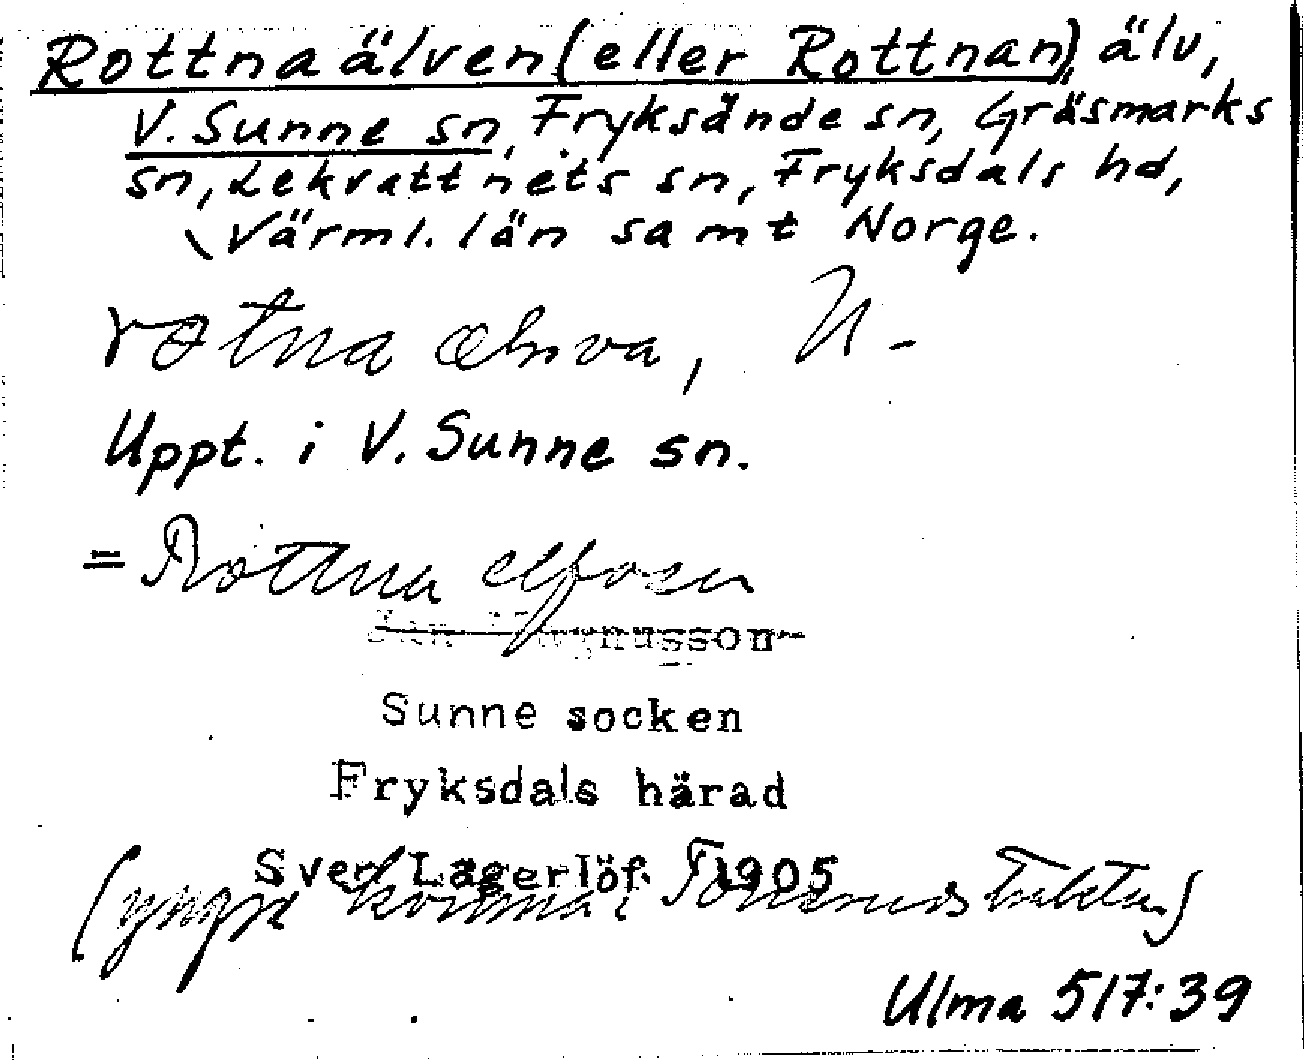 Rottnaälven (eller Rottnan), älv,
V. Sunne sn, Fryksände sn, Gräsmarks
sn, Lekvattnets sn, Fryksdals hd,
Värml. län samt Norge.
rotna
Uppt. i V. Sunne sn.
= Rottna elfven
Jan Magnusson
Sunne socken
Fryksdals härad
Sven Lagerlöf 1905
(yngre kvinna i
Ulma 517:39